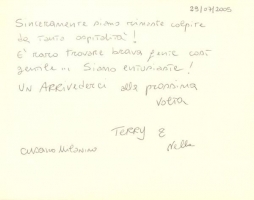 29/07/2005
Sinceramente siamo rimaste colpite
da tanta ospitalità!
E' raro trovare brava gente così
gentile... Siamo entusiaste!
UN ARRIVEDERCI alla prossima
volta
TERRY E
Nella